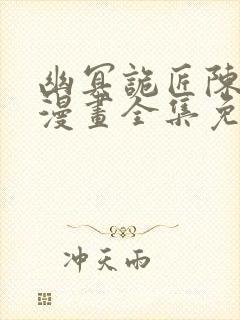 幽冥詭匠陳
漫畫全集免
冲天雨